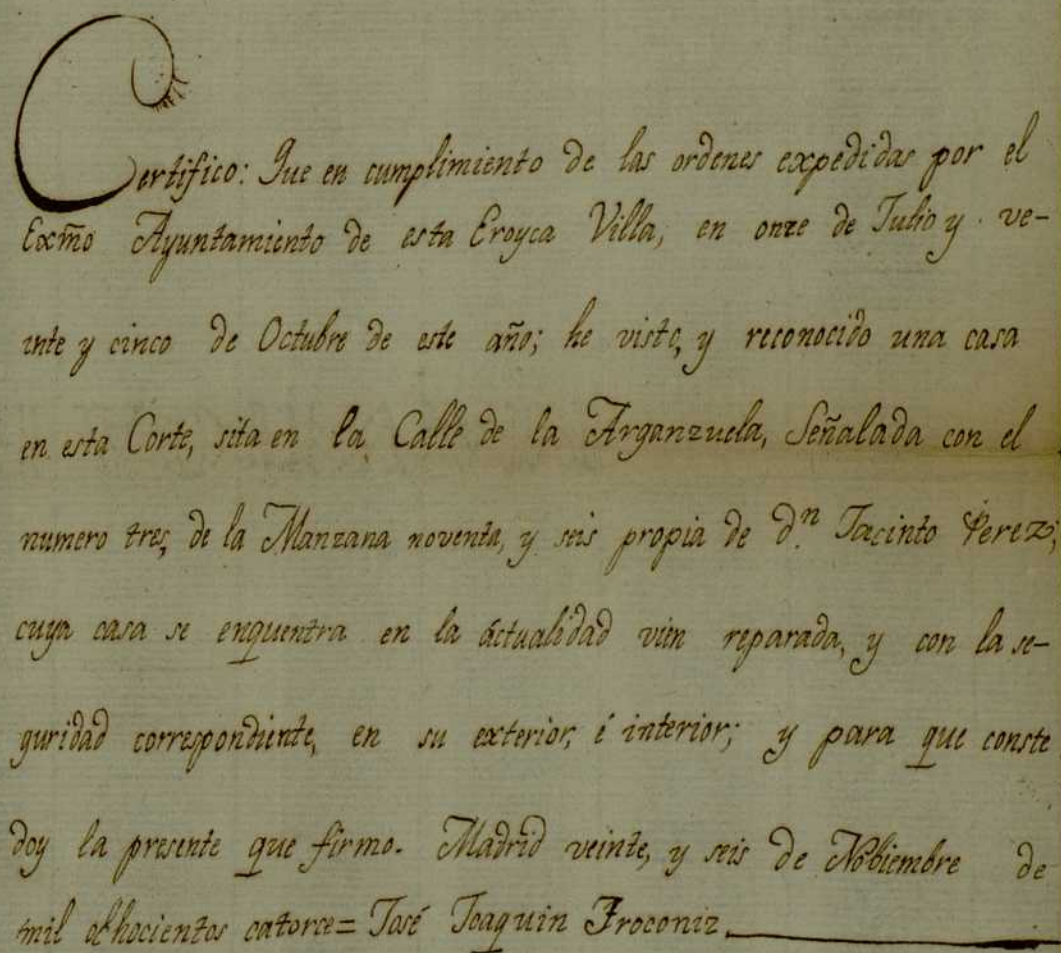 Certifico: Que en cumplimiento de las ordenes expedidas por el
Exm̃o Ayuntamiento de esta Eroyca Villa, en onze de Julio y ve-
inte y cinco de Octubre de este año; he visto, y reconocido una casa
en esta Corte, sita en la Calle de la Arganzuela, Señalada con el
numero tres, de la Manzana noventa, y seis propia de dⁿ. Jacinto Perez,
cuya casa se enquentra en la áctualidad vien reparada, y con la se-
guridad correspondiente, en su exterior, é interior; y para que conste
doy la presente que firmo. Madrid veinte, y seis de Nobiembre de
mil ochocientos catorce= José Joaquin Troconiz